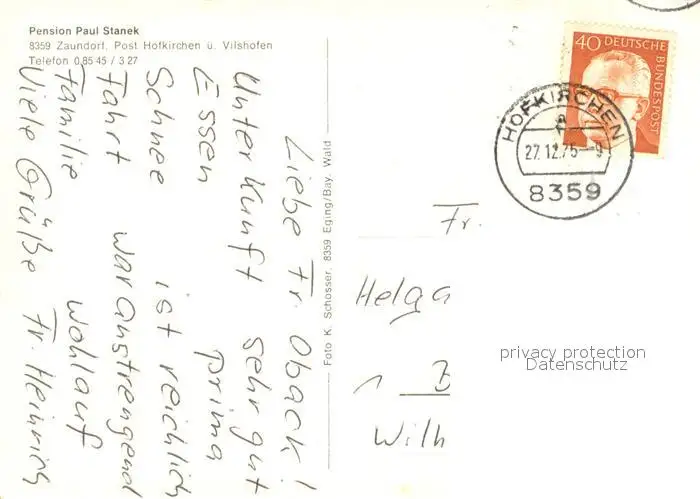 Pension Paul Stanek
8359 Zaundorf, Post Hofkirchen ü. Vilshofen
Telefon 0 85 45 / 3 27
Liebe Fr. Oback!
Unterkunft sehr gut
Essen prima
Schnee ist reichlich
Fahrt war anstrengend
Familie wohlauf
Viele Grüße Fr. Heinrich
Foto K. Schosser, 8359 Eging/Bay. Wald
40 DEUTSCHE BUNDESPOST
HOFKIRCHEN
a
27.12.75-9
8359
Fr.
Helga
1 B
Wilh
privacy protection
Datenschutz